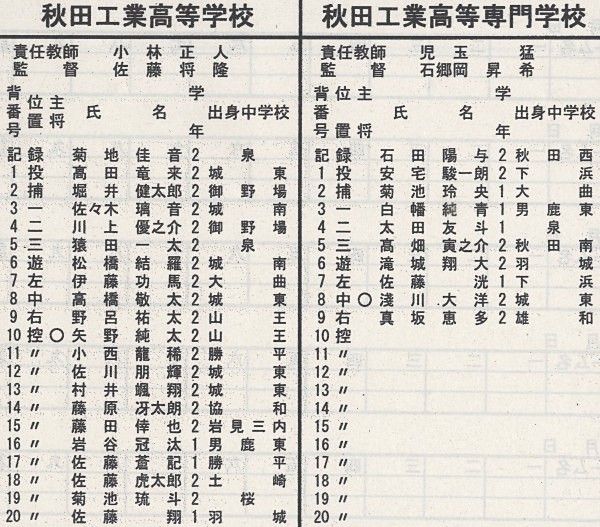 秋田工業高等学校
責任教師 小林正人
監督 佐藤将隆
背番号 位置 主将 氏名 学年 出身中学校
記録 菊地佳音 2 泉
1 投 高田竜来 2 城東
2 捕 堀井健太郎 2 御野場
3 一 佐々木璃音 2 城南
4 二 川上優之介 2 御野場
5 三 猿田一太 2 泉
6 遊 松橋結羅 2 城南
7 左 伊藤功馬 2 大曲
8 中 高橋敬太 2 城東
9 右 野呂祐太 2 山王
10 控 〇 矢野純太 2 山王
11 〃 小西龍稀 2 勝平
12 〃 佐川朋輝 2 城東
13 〃 村井颯翔 2 城東
14 〃 藤原冴太朗 2 協和
15 〃 藤田倖也 2 岩見三内
16 〃 岩谷冠汰 1 男鹿東
17 〃 佐藤蒼記 1 勝平
18 〃 佐藤虎太郎 2 土崎
19 〃 菊池琉斗 2 桜
20 〃 佐藤翔 1 羽城
秋田工業高等専門学校
責任教師 児玉猛
監督 石郷岡昇希
背番号 位置 主将 氏名 学年 出身中学校
記録 石田陽与 2 秋田西
1 投 安宅駿一朗 2 下浜
2 捕 菊池玲央 1 大曲
3 一 白幡純青 1 男鹿東
4 二 太田友之斗 1 泉
5 三 高畑寅介 2 秋田南
6 遊 滝城翔大 2 羽城
7 左 佐藤洸 1 下浜
8 中 〇 淺川大洋 2 城東
9 右 真坂恵多 2 雄和
10 控
11 〃
12 〃
13 〃
14 〃
15 〃
16 〃
17 〃
18 〃
19 〃
20 〃